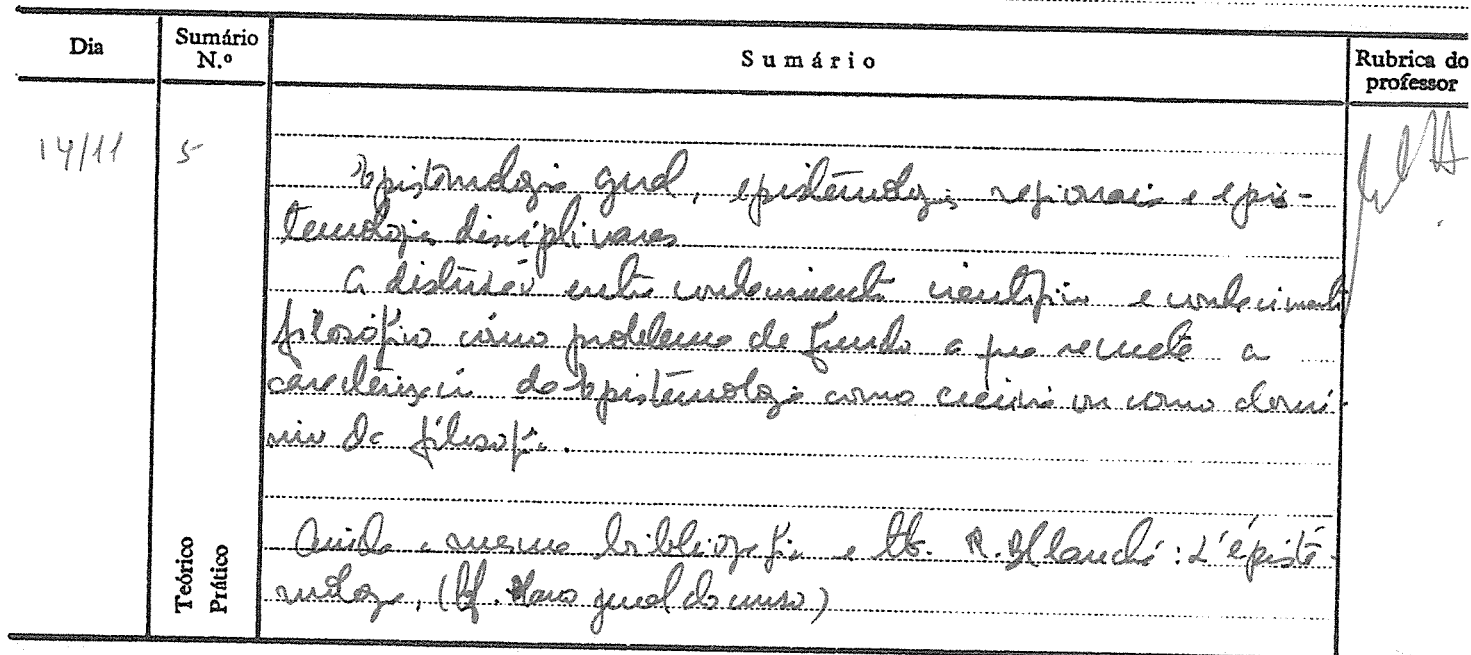 Dia
Sumário N.º
Sumário
Rubrica do professor
14/11
5
Epistemologia geral, epistemologias regionais e epis-
temologias disciplinares
A distinção entre conhecimento científico e conhecimento
filosófico como problema de fundo a que remete a
caracterização da Epistemologia como ciência ou como domí-
nio da filosofia.
Ainda a mesma bibliografia e tb. R. Blanché: L'épisté-
mologie, (cf. Plano geral do curso)
Teórico
Prático